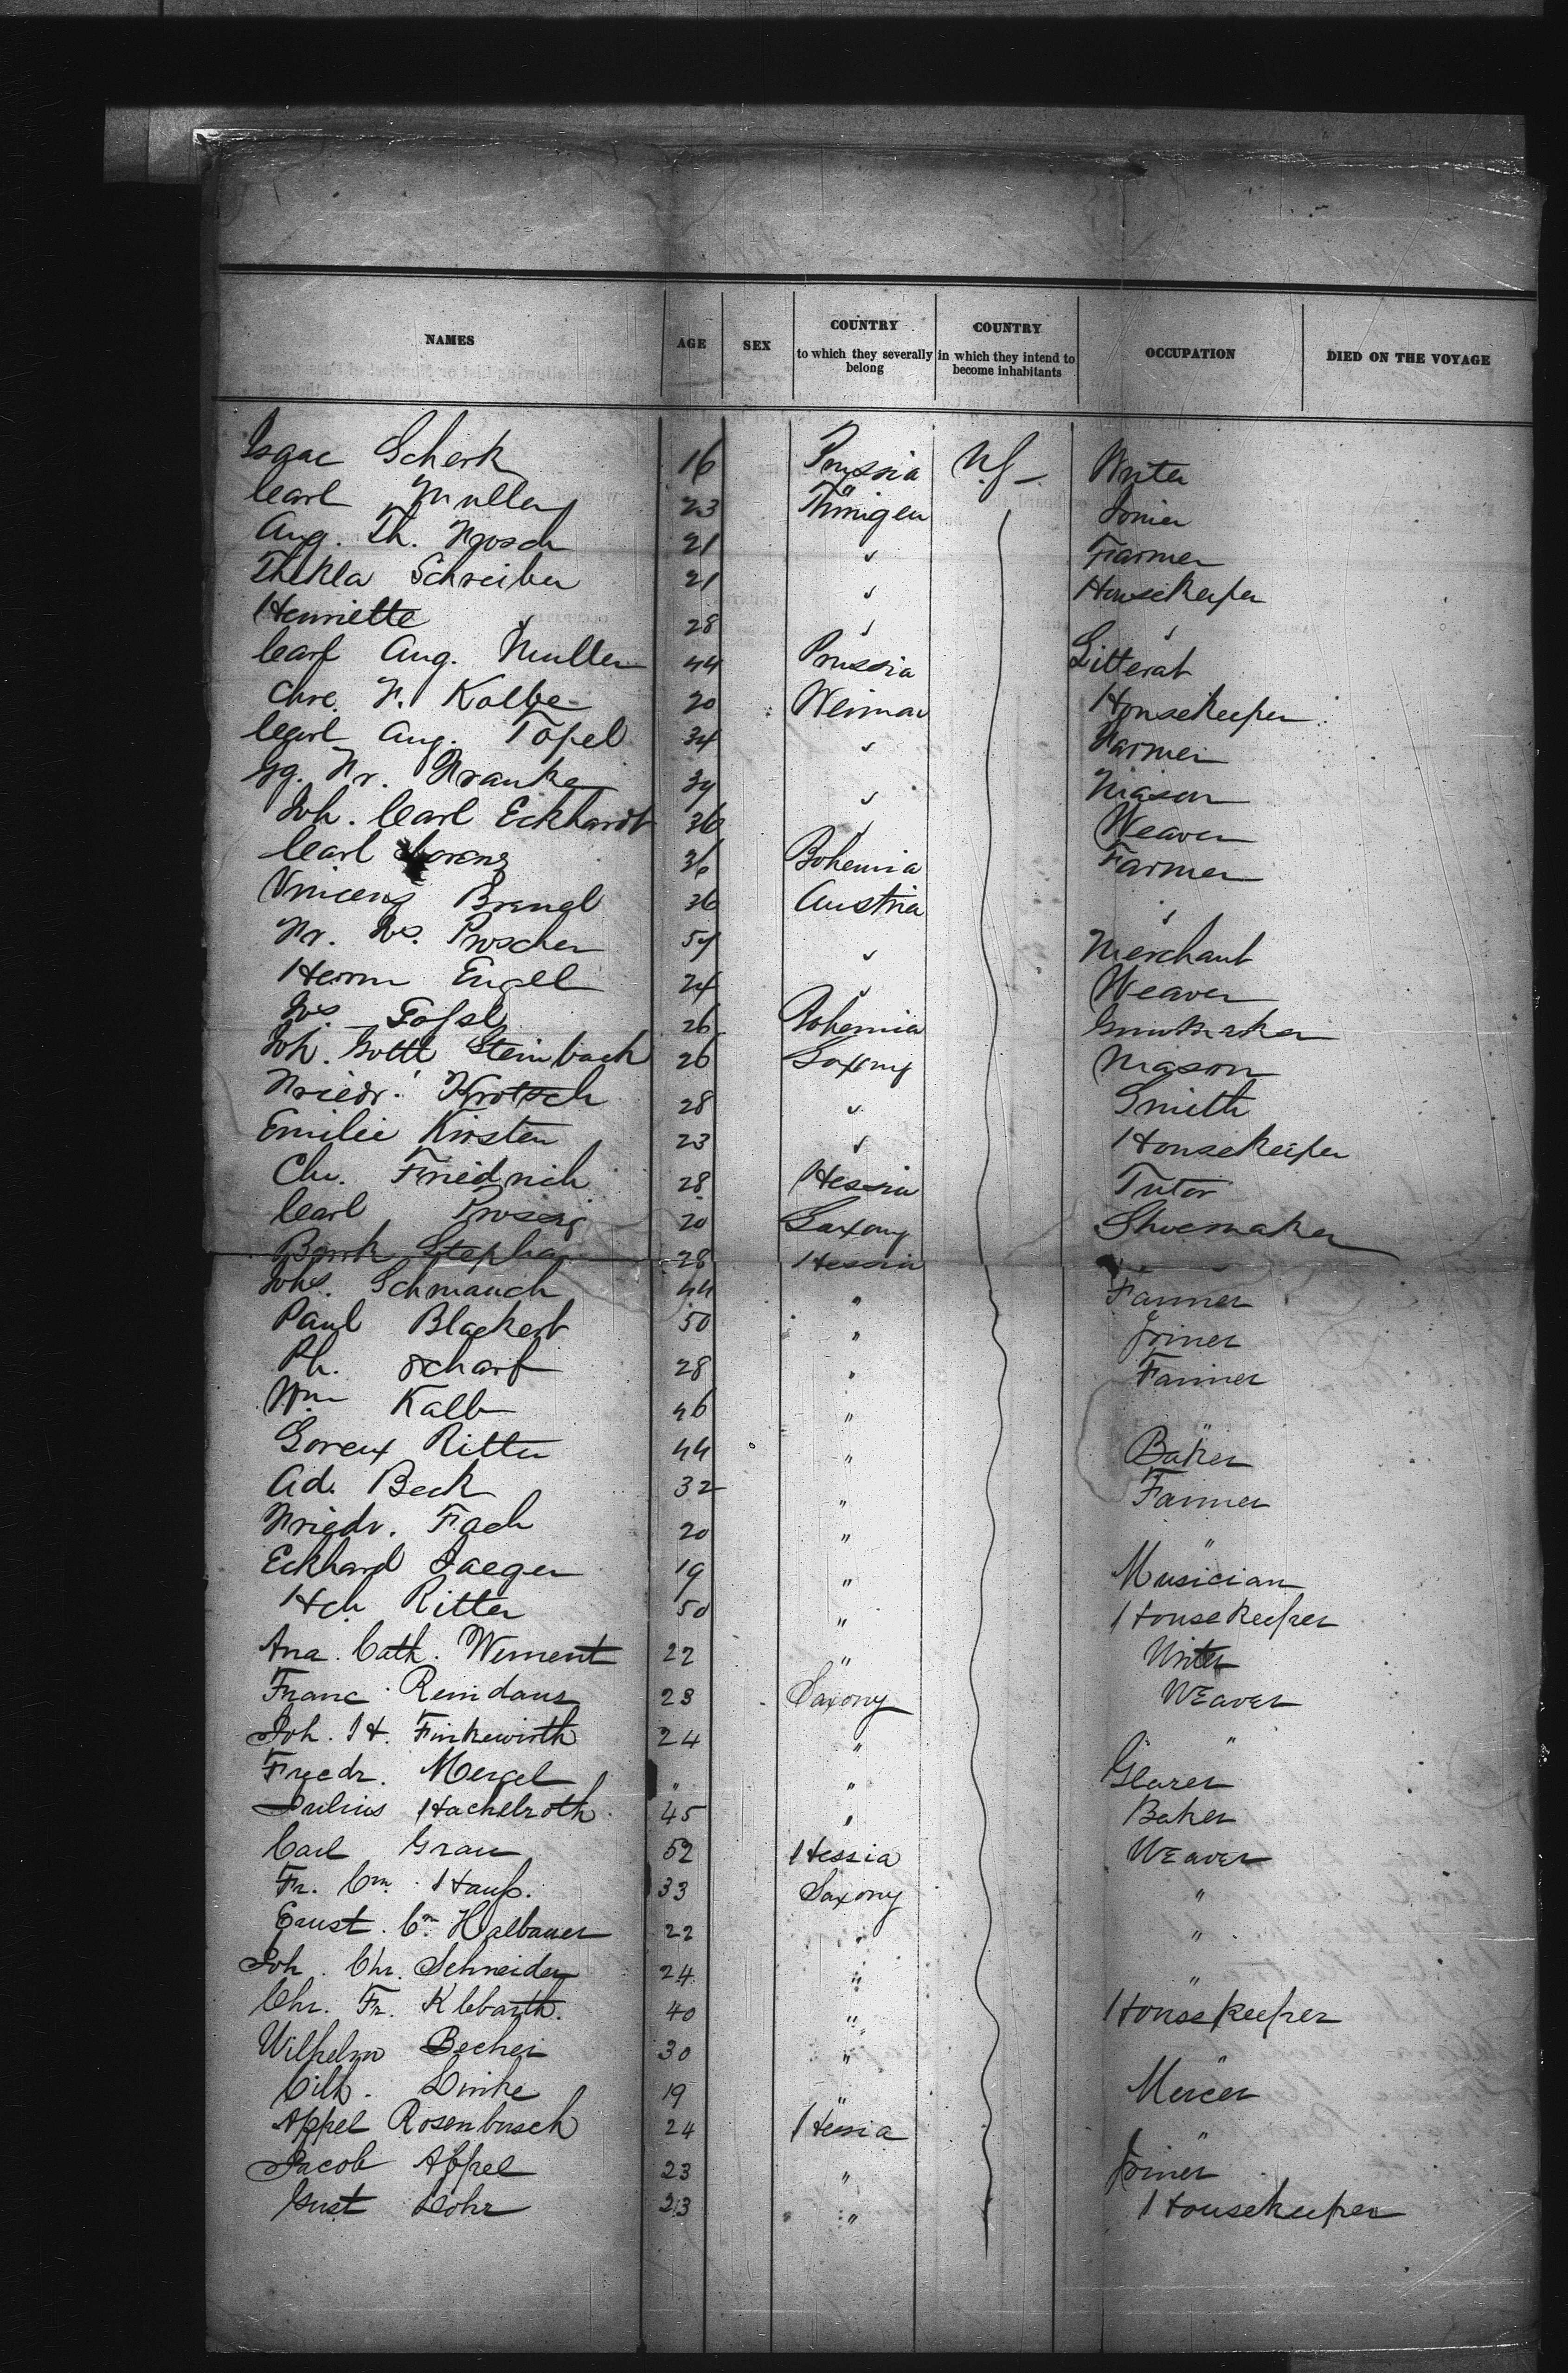 NAMES AGE SEX COUNTRY to which they severally belong COUNTRY in which they intend to become inhabitants OCCUPATION DIED ON THE VOYAGE
Isaac Scherk 16 Prussia Writer
Carl Muller 23 Thüringen Joiner
Aug. Th. 21 " Farmer
Thekla Schreiber 21 " Housekeeper
Henriette " 28 " "
Carl Aug. Muller 44 Prussia Litterat
Chre. F. Kolbe 20 Weimar Housekeeper
Carl Aug. Töpel 34 " Farmer
Gg. Fr. Franke 34 " Mason
Joh. Carl Eckhardt 36 " Weaver
Carl Lorenz 36 Bohemia Farmer
Vincenz 36 Austria "
Fr. Jos. Proscher 54 " Merchant
Herm Engel 24 " Weaver
Jos. 26 Bohemia
Joh. Gottl Steinbach 26 Saxony Mason
Friedr. Krotsch 28 " Smith
Emilie Kirsten 23 " Housekeeper
Chr. Friedrich 28 Hessia Tutor
Carl 20 Saxony Shoemaker
Stephan 28 Hessia
Johs. Schmauch 44 " Farmer
Paul Blackert 50 " Joiner
Ph. Scharf 28 " Farmer
Wm Kalb 46 "
Lorenz Ritter 44 " Baker
Ad. Beck 32 " Farmer
Friedr. Fach 20 "
Eckhard Jaeger 19 " Musician
Hch Ritter 50 " Housekeeper
Ana. Cath. Werment 22 " Writer
Franc Reindaus 28 Saxony Weaver
Joh. H. Finkewirth 24 " "
Friedr. Mergel " " Glazer
Julius Hachelroth 45 " Baker
Carl Grau 52 Hessia Weaver
Fr. Cm. Haup. 33 Saxony "
Ernst. Cm Halbauer 22 " "
Joh. Chr. Schneider 24 " "
Chr. Fr. Klebarth. 40 " Housekeeper
Wilhelm Becher 30 "
Wilh. Linke 19 " Mercer
Appel Rosenbusch 24 Hessia
Jacob Appel 23 " Joiner
Gust Lohr 23 " Housekeeper